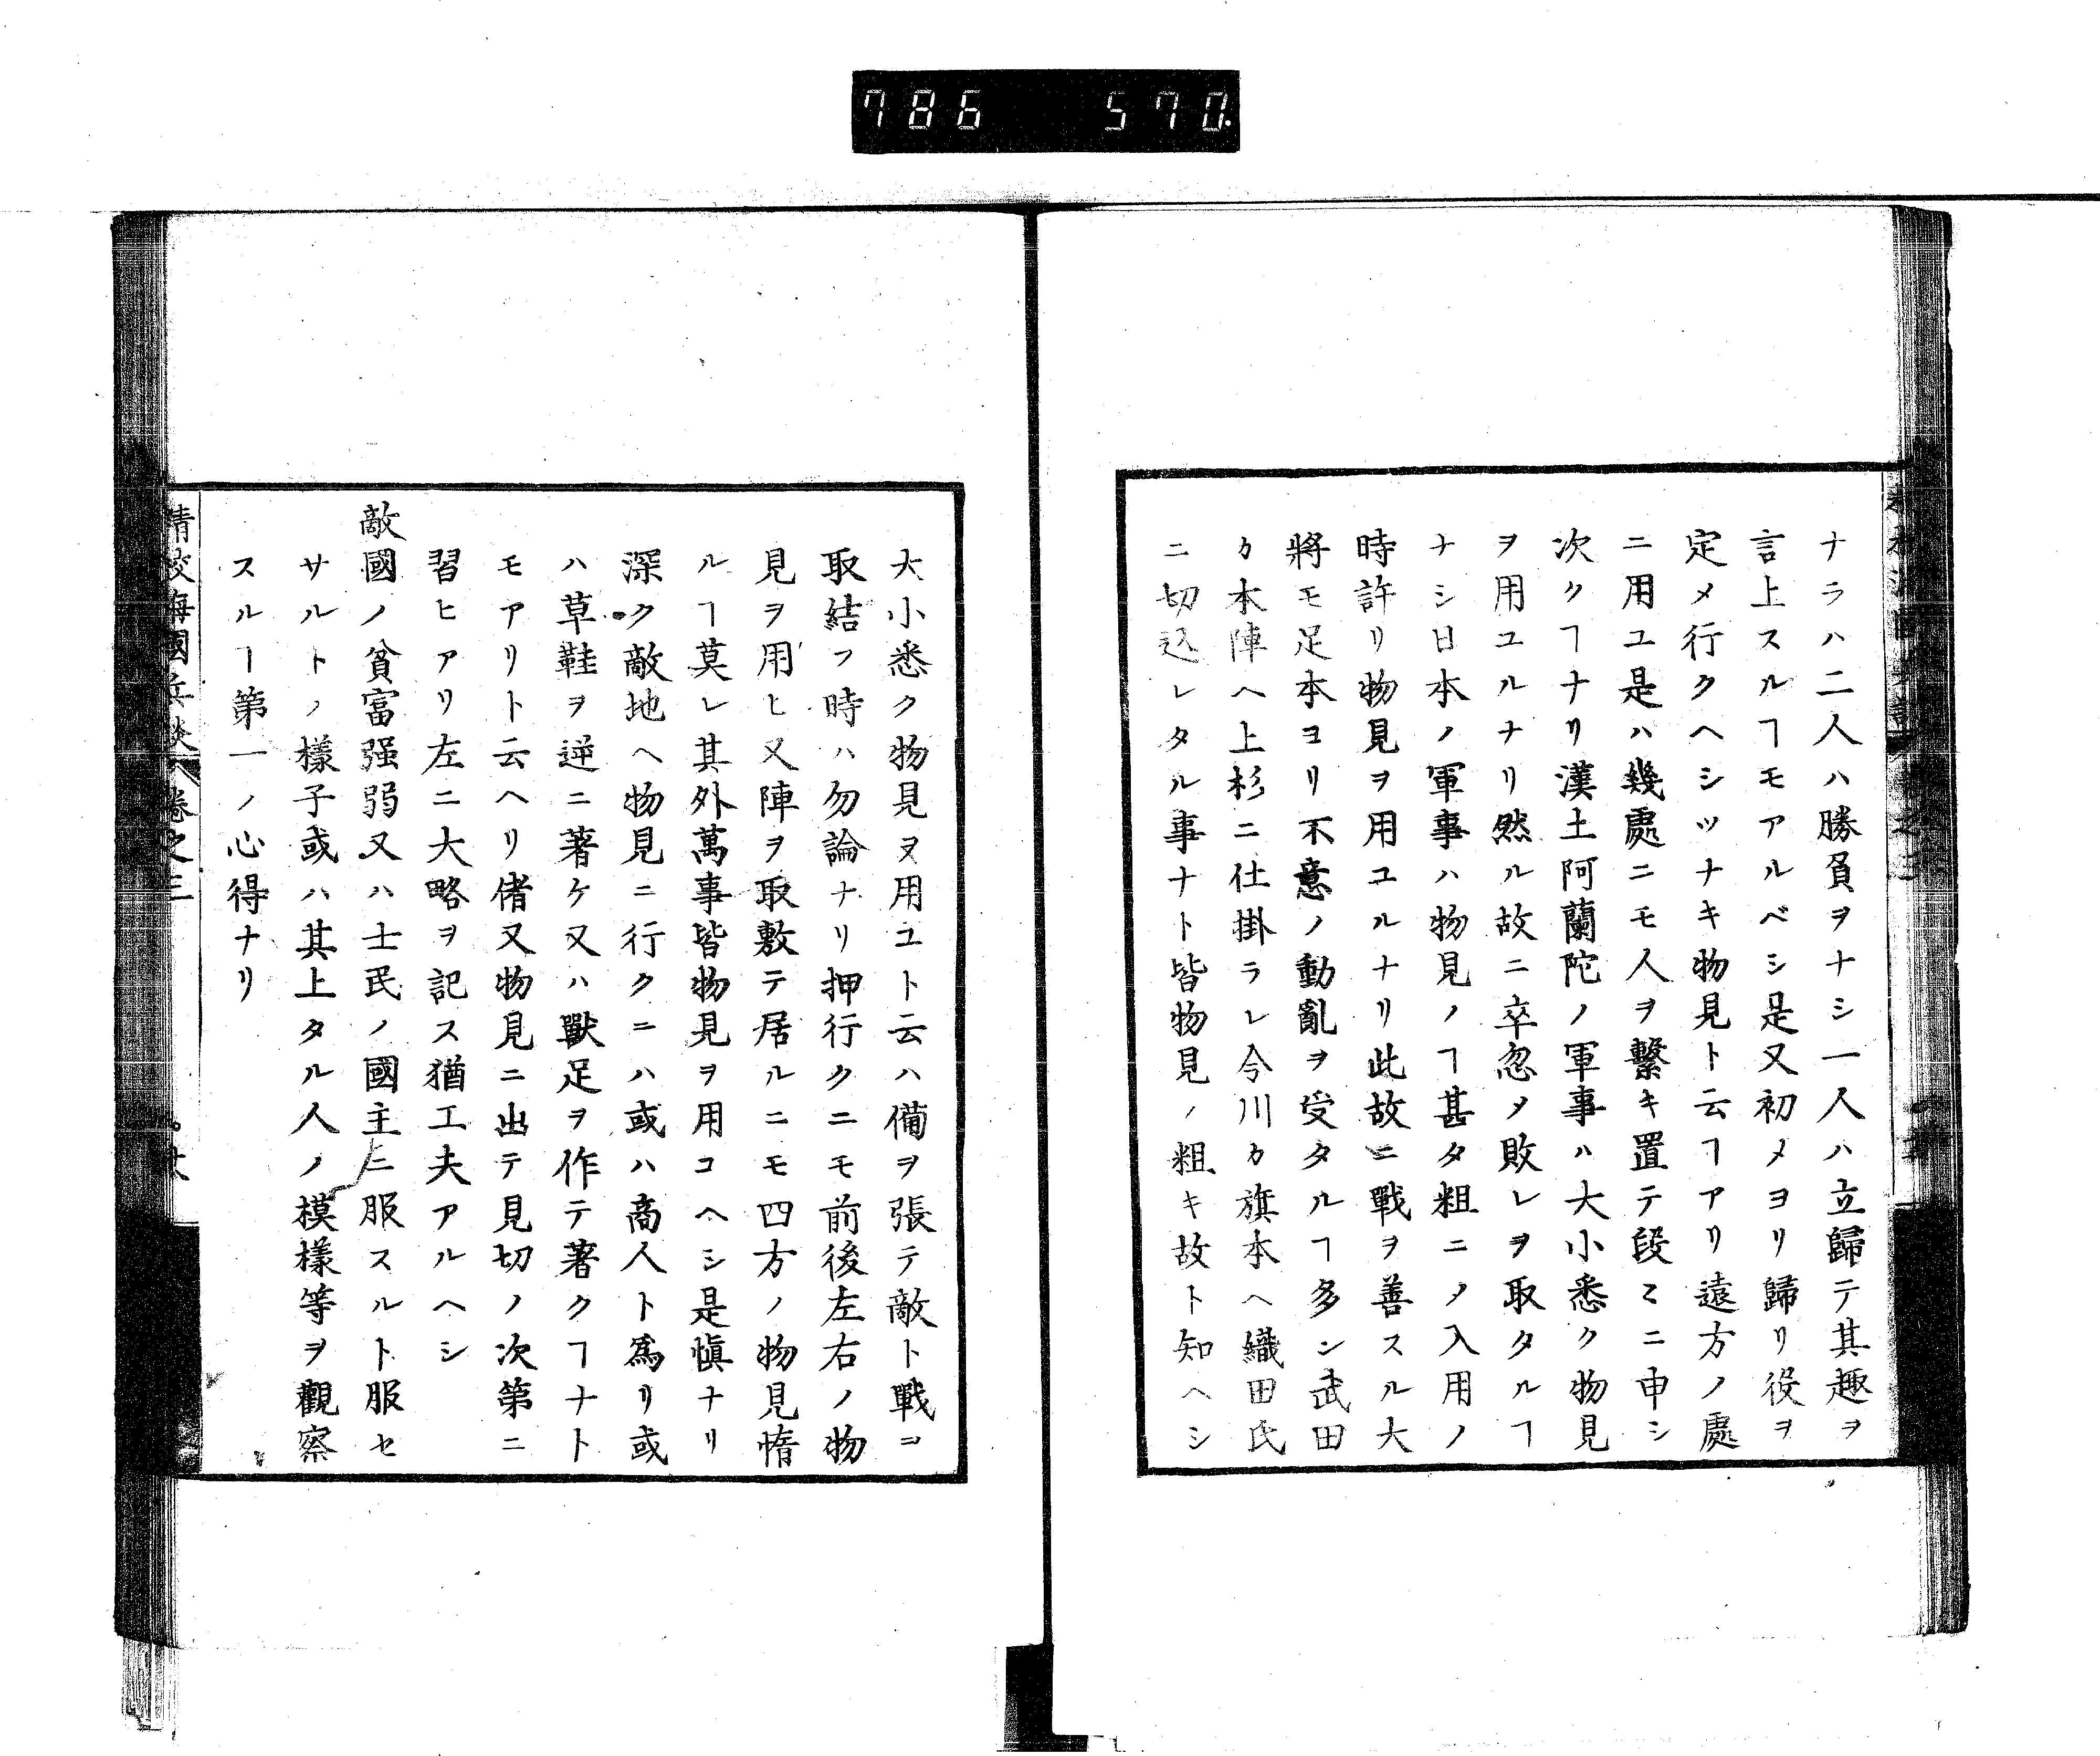 786 570
ナラハ二人ハ勝負ヲナシ一人ハ立歸テ其趣ヲ
言上スルヿモアルベシ是又初メヨリ歸リ役ヲ
定メ行クヘシツナキ物見ト云ヿアリ遠方ノ處
ニ用ユ是ハ幾處ニモ人ヲ繫キ置テ段〻ニ申シ
次クヿナリ漢土阿蘭陀ノ軍事ハ大小悉ク物見
ヲ用ユルナリ然ル故ニ卒忽メ敗レヲ取タルヿ
ナシ日本ノ軍事ハ物見ノヿ甚タ粗ニメ入用ノ
時許リ物見ヲ用ユルナリ此故ニ戰ヲ善スル大
將モ足本ヨリ不意ノ動亂ヲ受タルヿ多ン武田
カ本陣ヘ上杉ニ仕掛ラレ今川カ旗本ヘ織田氏
ニ切込レタル事ナト皆物見ノ粗キ故ト知ヘシ
大小悉ク物見ヌ用ユト云ハ備ヲ張テ敵ト戰コ
取結フ時ハ勿論ナリ押行クニモ前後左右ノ物
見ヲ用ヒ又陣ヲ取敷テ居ルニモ四方ノ物見惰
ルヿ莫レ其外萬事皆物見ヲ用コヘシ是愼ナリ
深ク敵地ヘ物見ニ行クニハ或ハ商人ト爲リ或
ハ草鞋ヲ逆ニ著ケ又ハ獸足ヲ作テ著クヿナト
モアリト云ヘリ偖又物見ニ出テ見切ノ次第ニ
習ヒアリ左ニ大略ヲ記ス猶工夫アルヘシ
敵國ノ貧富强弱又ハ士民ノ國主ニ服スルト服セ
サルトノ樣子或ハ其上タル人ノ模樣等ヲ觀察
スルヿ第一ノ心得ナリ
精校海國兵談 卷之三